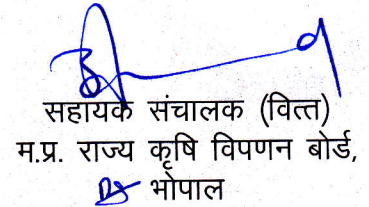 सहायक संचालक (वित्त)
म.प्र. राज्य कृषि विपणन बोर्ड,
भोपाल